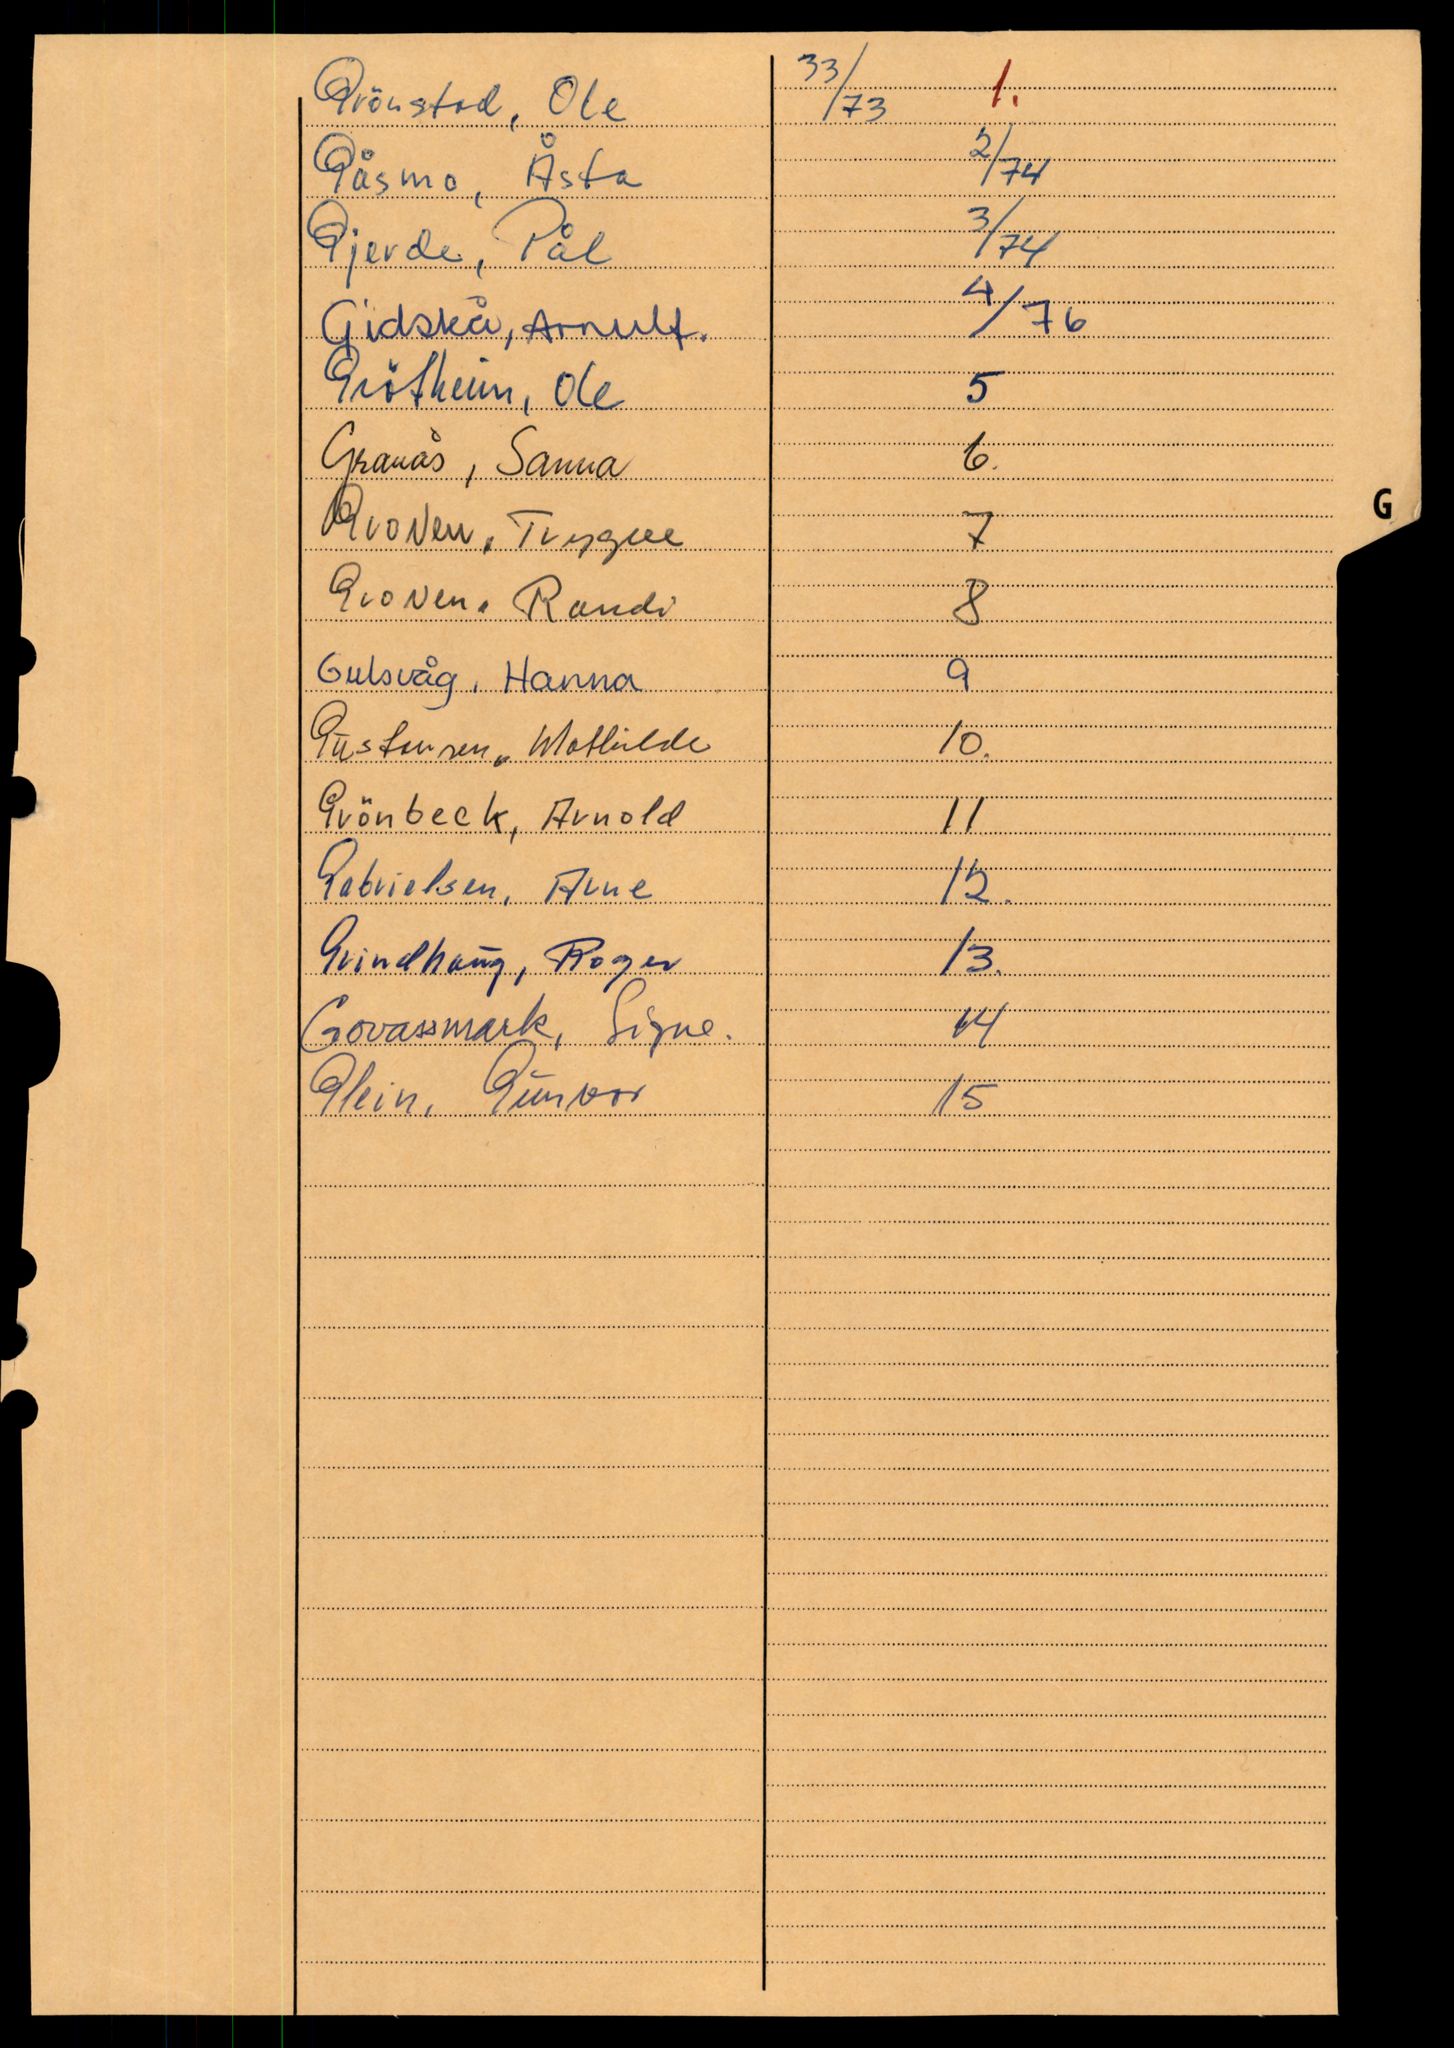 Grönstad, Ole 33/73 1.
Gåsmo, Åsta 2/74
Gjerde, Pål 3/74
Gidskå, Arnulf. 4/76
Grötheim, Ole 5
Granås, Sanna 6.
Groven, Trygve 7
Groven, Randi 8
G
Gulsvåg, Hanna 9
Gustavsen, Mathilde 10.
Grönbeck, Arnold 11
Gabrielsen, Arne 12.
Grindhaug, Roger 13.
Govassmark, Signe. 14
Glein, Gunvor 15